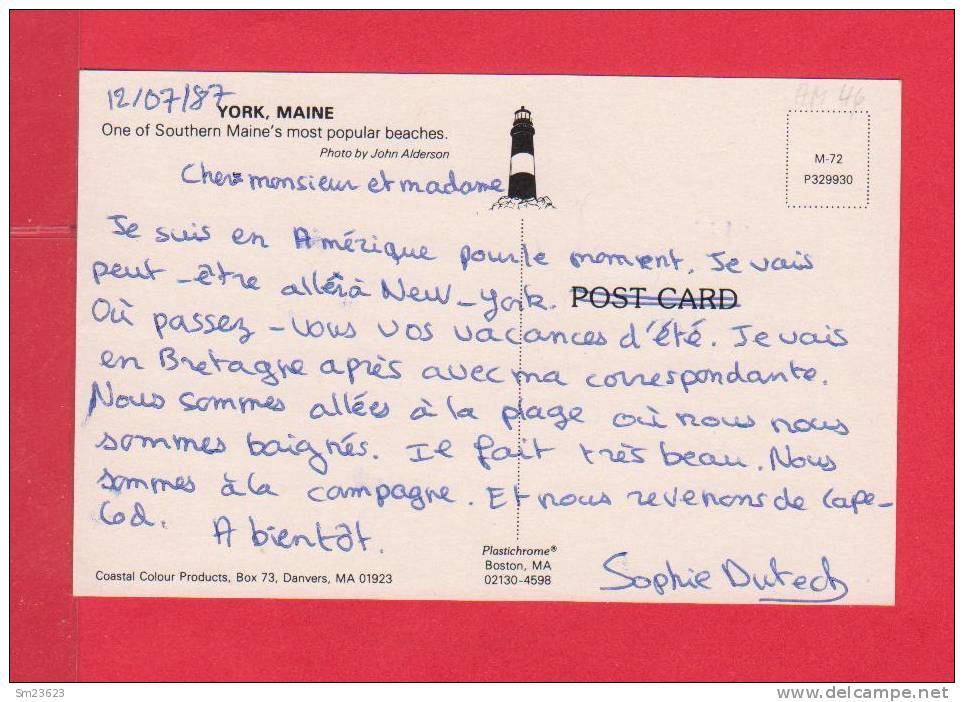 12/07/87
AM 46
YORK, MAINE
One of Southern Maine's most popular beaches.
Photo by John Alderson
M-72
P329930
Cher monsieur et madame
Je suis en Amérique pour le moment. Je vais
peut-être aller à New-York. POST CARD
Où passez-vous vos vacances d'été. Je vais
en Bretagne après avec ma correspondante.
Nous sommes allées à la plage où nous nous
sommes baignés. Il fait très beau. Nous
sommes à la campagne. Et nous revenons de Cape-
Cod. A bientôt.
Sophie Dutech
Plastichrome®
Boston, MA
02130-4598
Coastal Colour Products, Box 73, Danvers, MA 01923
Sm23623
www.delcampe.net